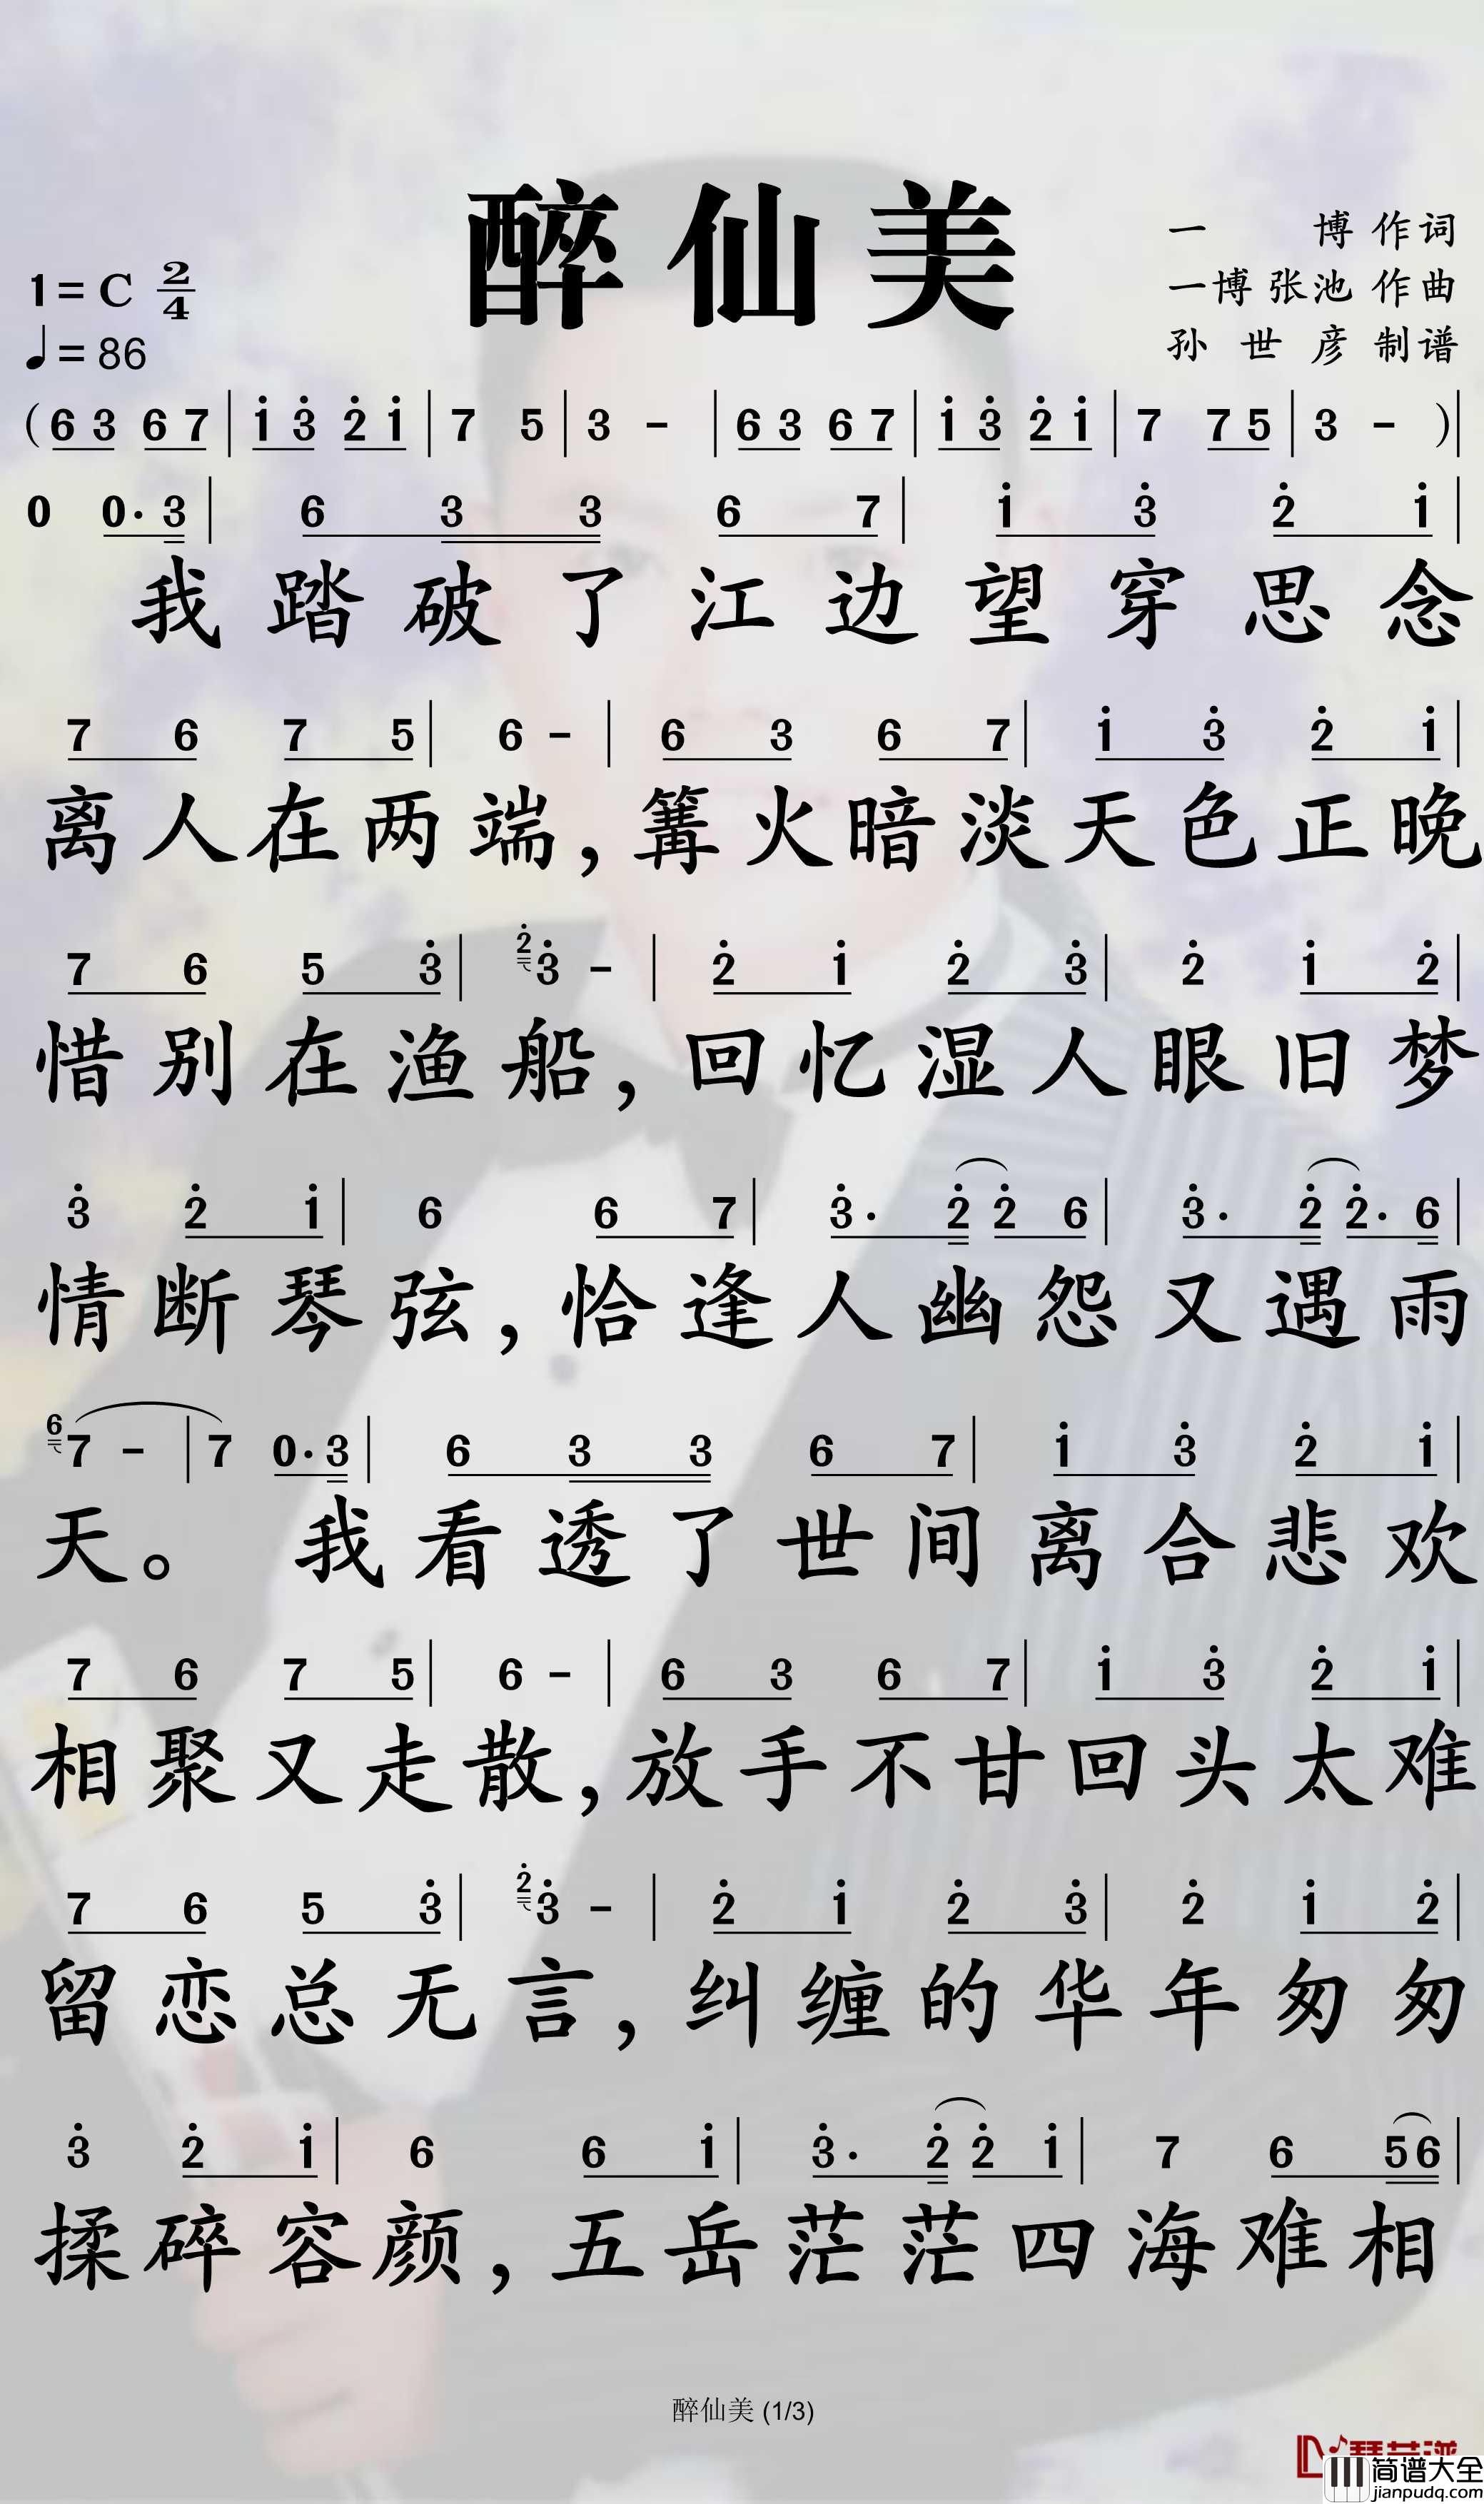 醉仙美
一 博 作词
一博 张池 作曲
孙 世 彦 制谱
1=C 2/4
♩=86
(6 3 6 7 | i 3̇ 2̇ i | 7 5 | 3 - | 6 3 6 7 | i 3̇ 2̇ i | 7 7 5 | 3 - )|
0 0· 3 | 6 3 3 6 7 | i 3̇ 2̇ i |
我踏破了江边望穿思念
7 6 7 5 | 6 - | 6 3 6 7 | i 3̇ 2̇ i |
离人在两端,篝火暗淡天色正晚
7 6 5 3̇ | 2̇ 3̇ - | 2̇ i 2̇ 3̇ | 2̇ i 2̇ |
惜别在渔船,回忆湿人眼旧梦
3̇ 2̇ i | 6 6 7 | 3̇· 2̇ 2̇ 6 | 3̇· 2̇ 2̇· 6 |
情断琴弦,恰逢人幽怨又遇雨
6 7 - | 7 0· 3 | 6 3 3 6 7 | i 3̇ 2̇ i |
天。 我看透了世间离合悲欢
7 6 7 5 | 6 - | 6 3 6 7 | i 3̇ 2̇ i |
相聚又走散,放手不甘回头太难
7 6 5 3̇ | 2̇ 3̇ - | 2̇ i 2̇ 3̇ | 2̇ i 2̇ |
留恋总无言,纠缠的华年匆匆
3̇ 2̇ i | 6 6 i | 3̇· 2̇ 2̇ i | 7 6 5 6 |
揉碎容颜,五岳茫茫四海难相
醉仙美 (1/3)
简谱大全
jianpudq.com